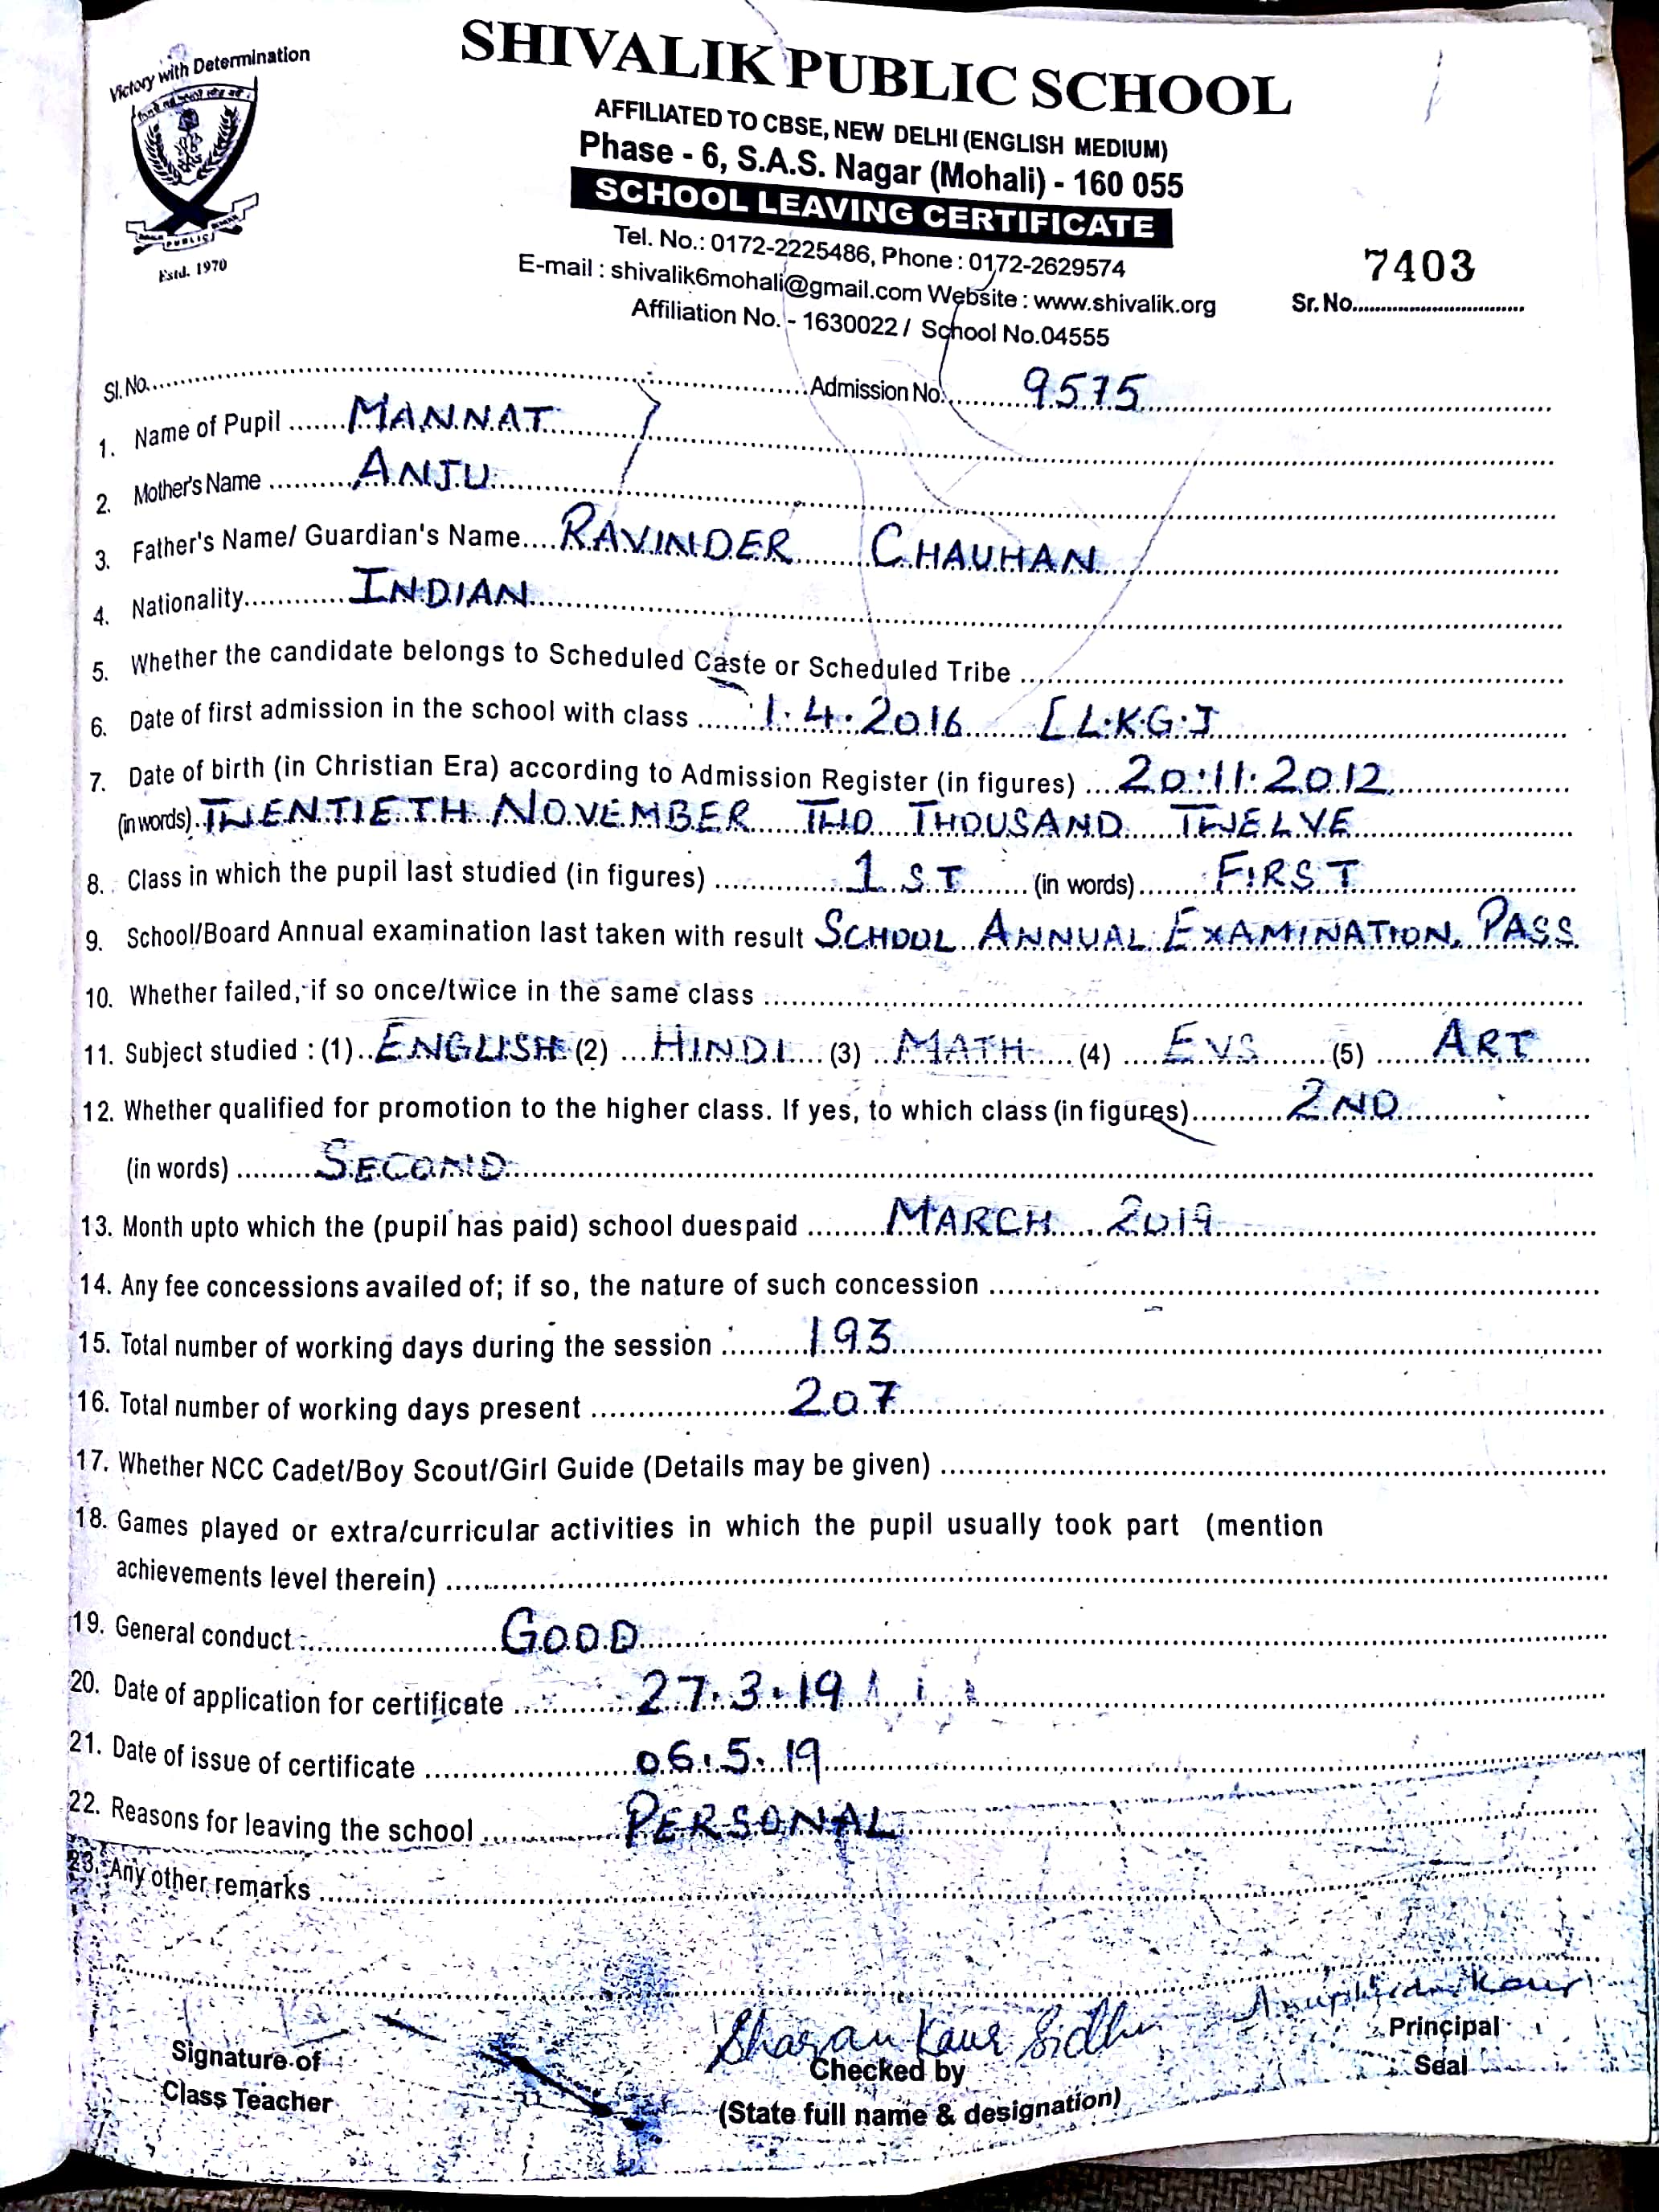 Victory with Determination
PUBLIC
Estd. 1970
SHIVALIK PUBLIC SCHOOL
AFFILIATED TO CBSE, NEW DELHI (ENGLISH MEDIUM)
Phase - 6, S.A.S. Nagar (Mohali) - 160 055
SCHOOL LEAVING CERTIFICATE
Tel. No.: 0172-2225486, Phone : 0172-2629574
E-mail : shivalik6mohali@gmail.com Website : www.shivalik.org
Affiliation No. - 1630022 / School No.04555
7403
Sr. No.
Sl. No. Admission No. 9575
1. Name of Pupil MANNAT
2. Mother's Name ANJU
3. Father's Name/ Guardian's Name RAVINDER CHAUHAN
4. Nationality INDIAN
5. Whether the candidate belongs to Scheduled Caste or Scheduled Tribe
6. Date of first admission in the school with class 1.4.2016 [L.K.G.]
7. Date of birth (in Christian Era) according to Admission Register (in figures) 20.11.2012
(in words) TWENTIETH NOVEMBER TWO THOUSAND TWELVE
8. Class in which the pupil last studied (in figures) 1ST (in words) FIRST
9. School/Board Annual examination last taken with result SCHOOL ANNUAL EXAMINATION, PASS
10. Whether failed, if so once/twice in the same class
11. Subject studied : (1) ENGLISH (2) HINDI (3) MATH (4) EVS (5) ART
12. Whether qualified for promotion to the higher class. If yes, to which class (in figures) 2ND
(in words) SECOND
13. Month upto which the (pupil has paid) school duespaid MARCH 2019
14. Any fee concessions availed of; if so, the nature of such concession
15. Total number of working days during the session 193
16. Total number of working days present 207
17. Whether NCC Cadet/Boy Scout/Girl Guide (Details may be given)
18. Games played or extra/curricular activities in which the pupil usually took part (mention
achievements level therein)
19. General conduct GOOD
20. Date of application for certificate 27.3.19
21. Date of issue of certificate 06.5.19
22. Reasons for leaving the school PERSONAL
23. Any other remarks
Sharan Kaur Sidhu Kaur
Signature of Checked by Principal
Class Teacher (State full name & designation) Seal